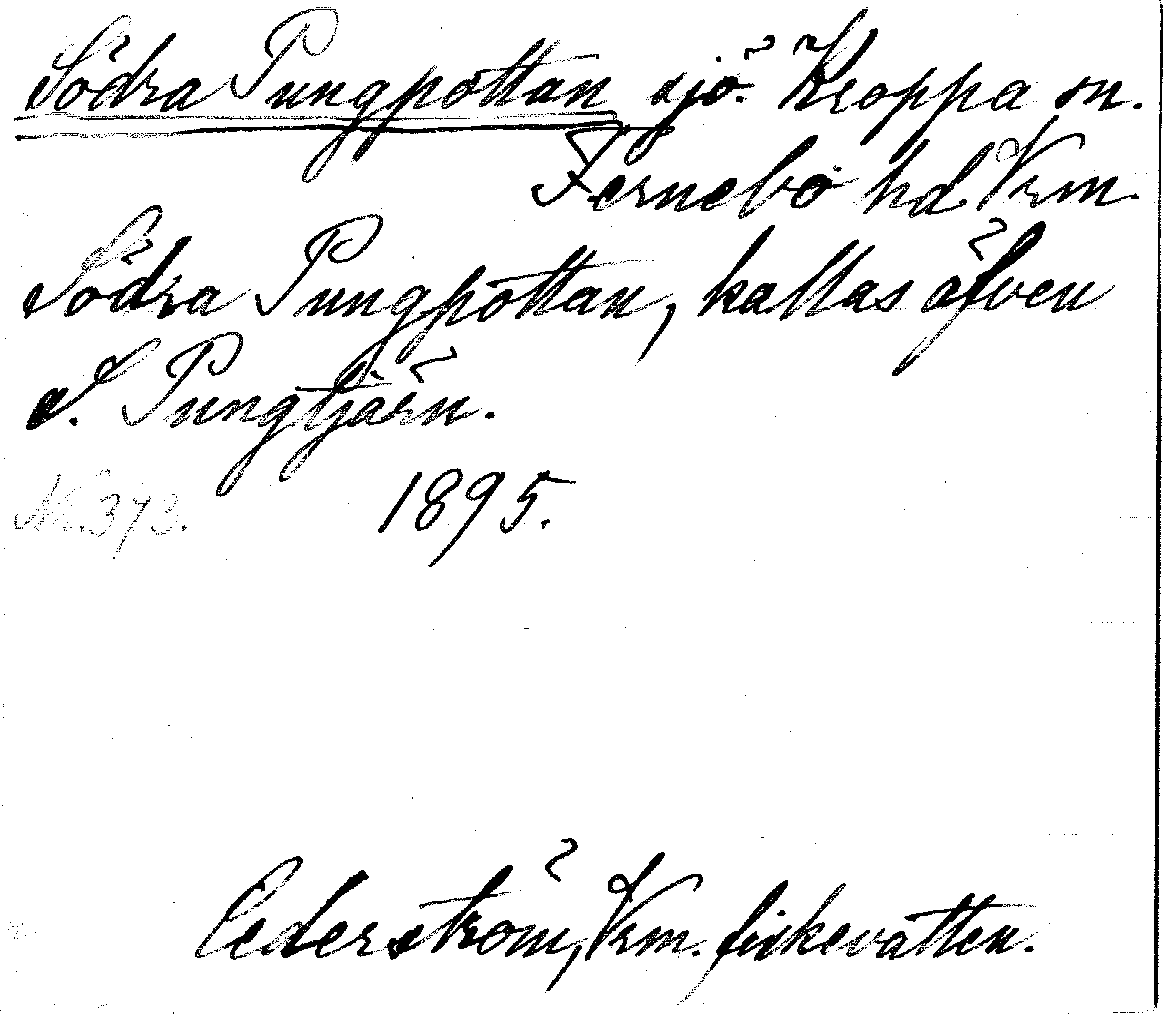 Södra Pungpottan sjö. Kroppa sn.
Fernebo hd Vrm.
Södra Pungpottan, kallas äfven
S. Pungtjärn.
No. 373. 1895.
Cederström, Vrm. fiskevatten.